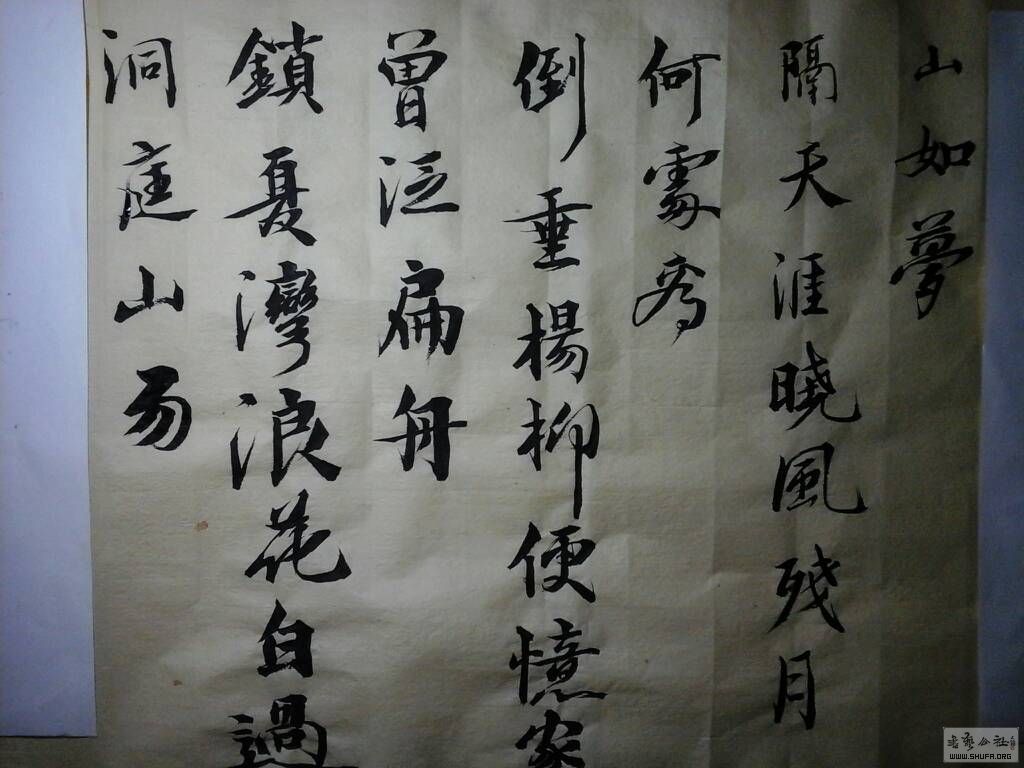 山如夢
隔天涯曉風殘月
何處
倒垂楊柳便憶家
曾泛扁舟
鎖夏灣浪花白過
洞庭山易
書藝公社
WWW.SHUFA.ORG